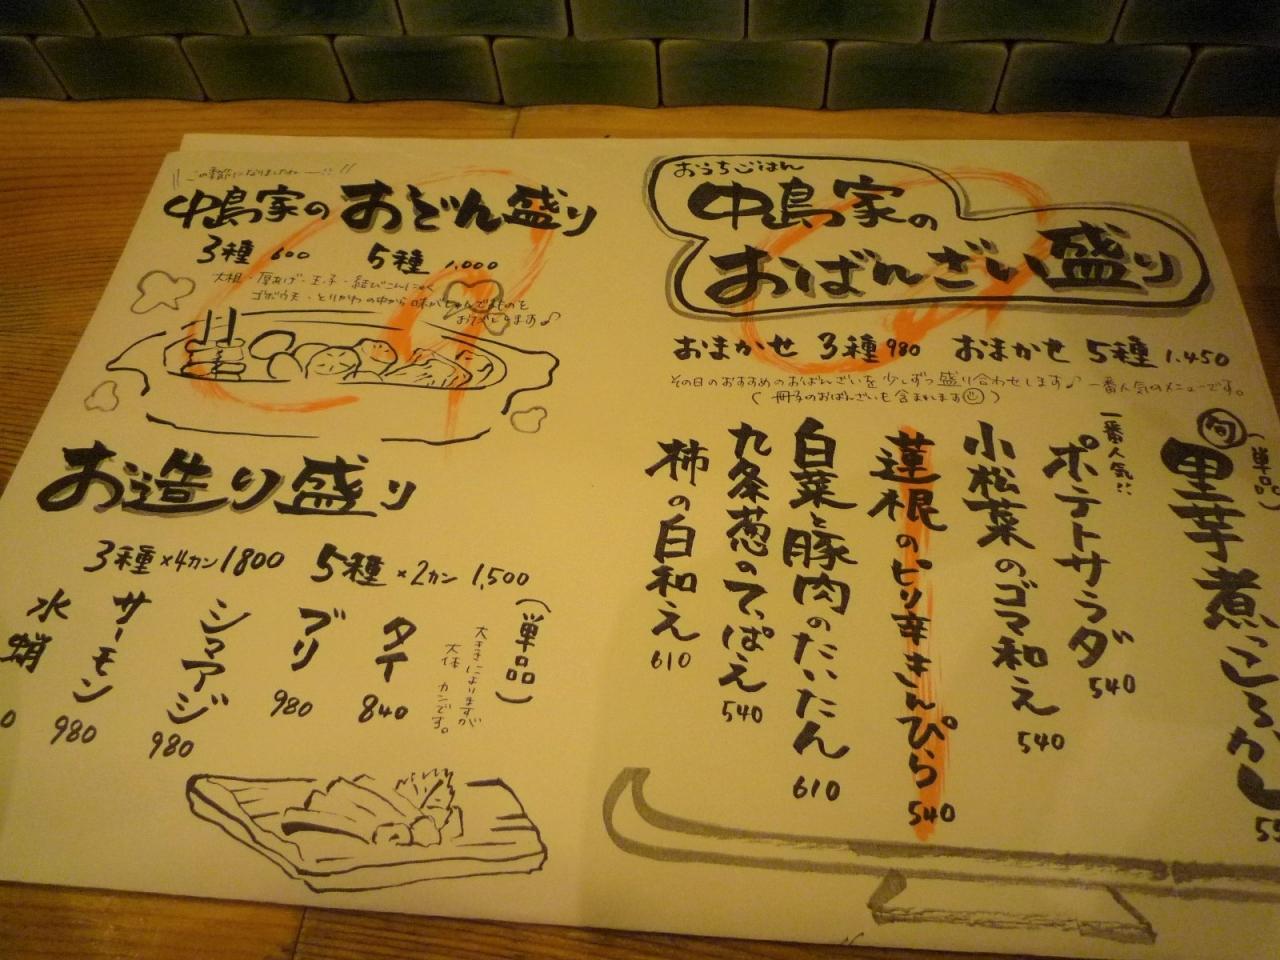 おうちごはん
中島家の
おばんざい盛り
おまかせ 3種 980 おまかせ 5種 1,450
その日のおすすめのおばんざいを少しずつ盛り合わせします♪ 一番人気のメニューです。
(冊子のおばんざいも含まれます)
(単品)
旬
里芋煮っころがし
一番人気!!
ポテトサラダ 540
小松菜のゴマ和え 540
蓮根のピリ辛きんぴら 540
白菜と豚肉のたいたん 610
九条葱のてっぱえ 540
柿の白和え 610
この季節になりましたねー!!
中島家のおでん盛り
3種 600 5種 1,000
大根・厚あげ・玉子・結びこんにゃく
ゴボウ天・とりがわの中から味がしゅんでるものを
お造り盛り
3種×4カン 1800 5種×2カン 1,500
(単品)
大きさによりますが
大体 カンです。
タイ 840
ブリ 980
シマアジ 980
サーモン 980
水蛸